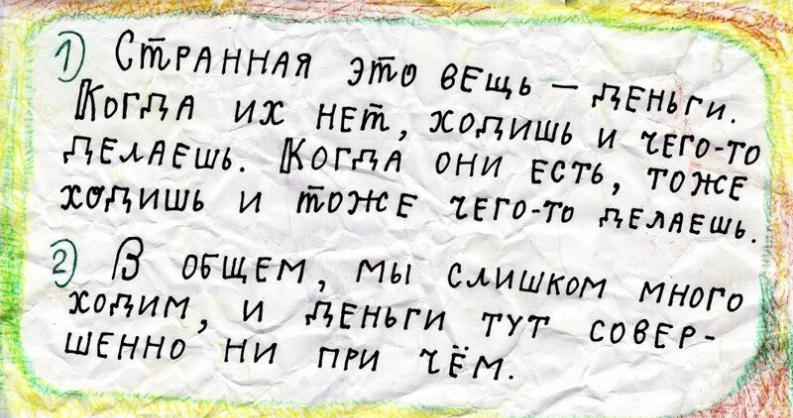 1) Странная это вещь — деньги.
Когда их нет, ходишь и чего-то
делаешь. Когда они есть, тоже
ходишь и тоже чего-то делаешь.
2) В общем, мы слишком много
ходим, и деньги тут совер-
шенно ни при чём.